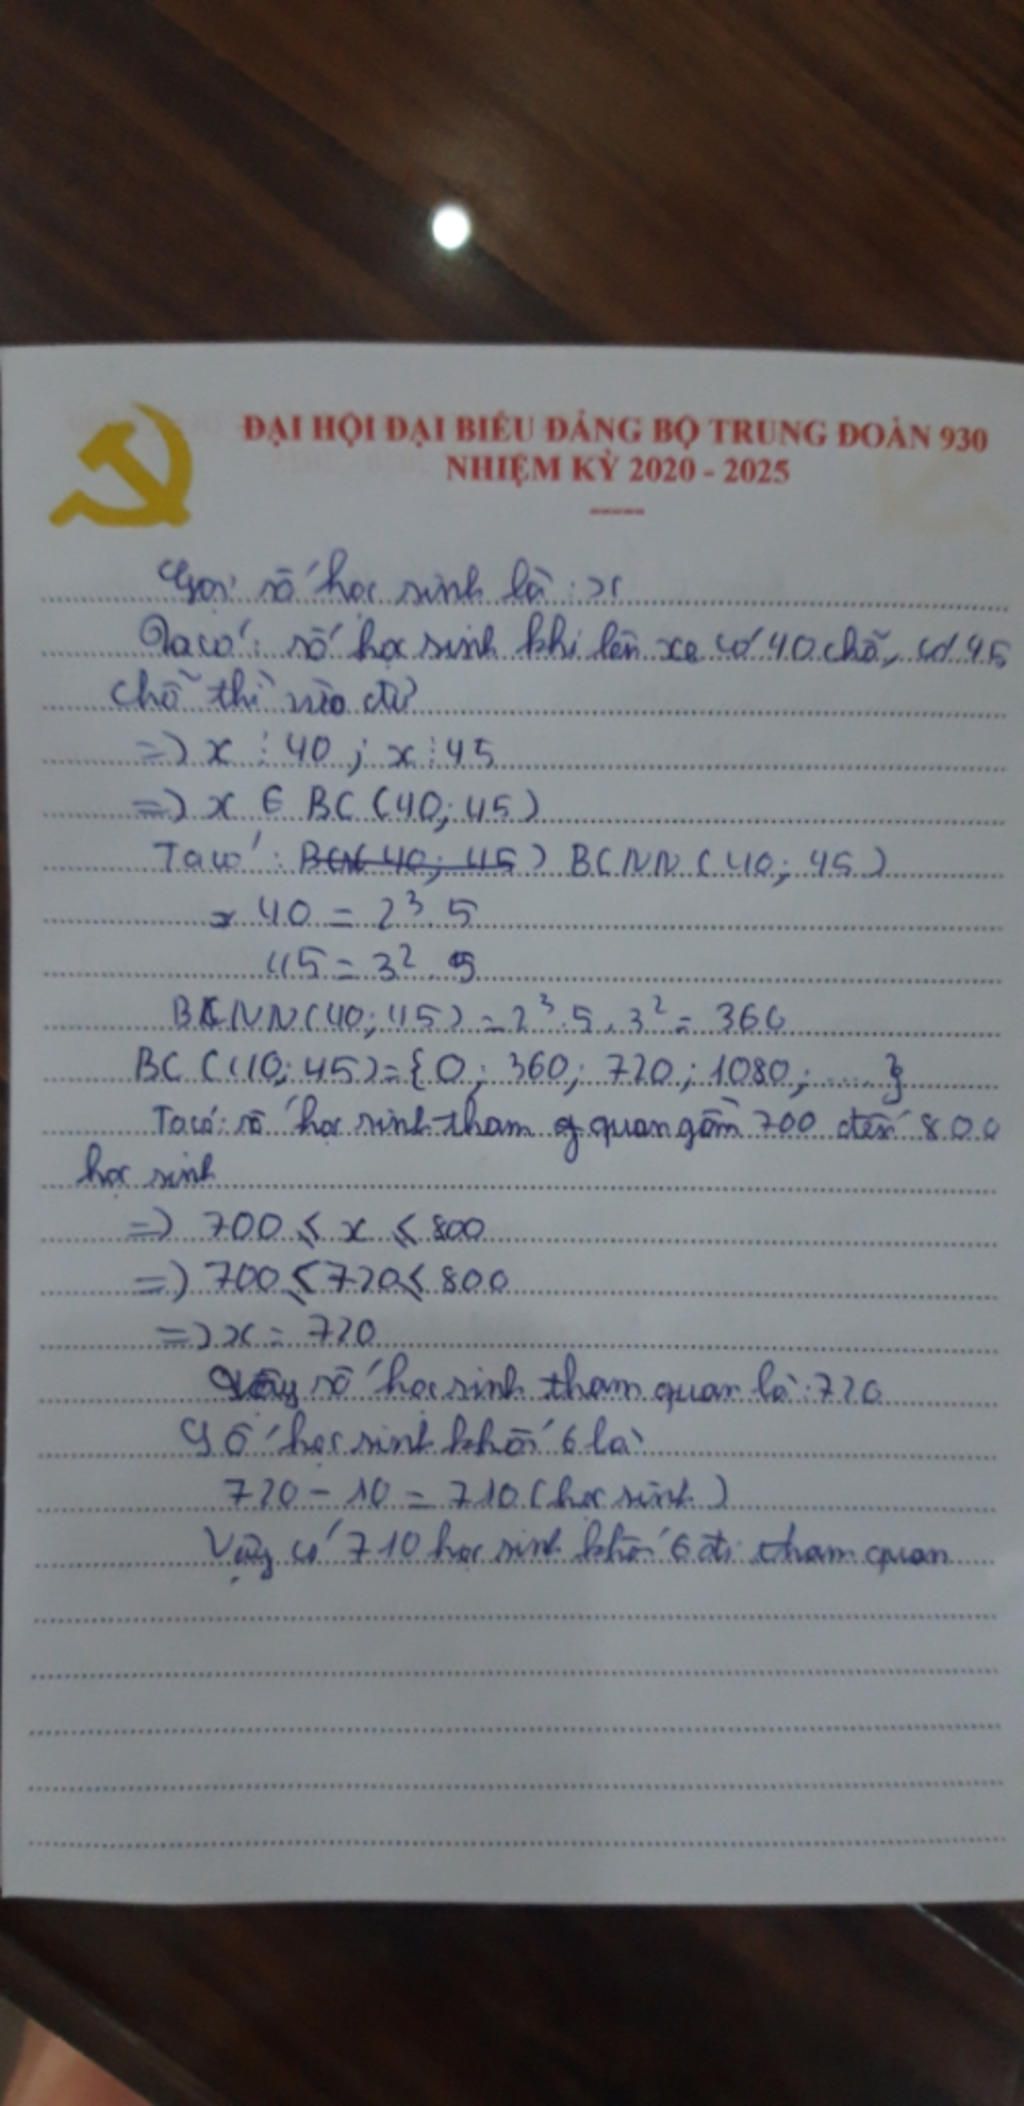 ĐẠI HỘI ĐẠI BIỂU ĐẢNG BỘ TRUNG ĐOÀN 930
NHIỆM KỲ 2020 - 2025
Gọi số học sinh là: x
Ta có: số học sinh khi lên xe có 40 chỗ, có 45
chỗ thì vừa đủ
=> x ⋮ 40 ; x ⋮ 45
=> x ∈ BC (40; 45)
Ta có: BCNN (40; 45)
40 = 2³. 5
45 = 3². 5
BCNN (40; 45) = 2³. 5. 3² = 360
BC (40; 45) = {0; 360; 720; 1080; .....}
Ta có: số học sinh tham quan gồm 700 đến 800
học sinh
=> 700 ≤ x ≤ 800
=> 700 ≤ 720 ≤ 800
=> x = 720
Vậy số học sinh tham quan là: 720
Số học sinh khối 6 là
720 - 10 = 710 (học sinh)
Vậy có 710 học sinh khối 6 đi tham quan